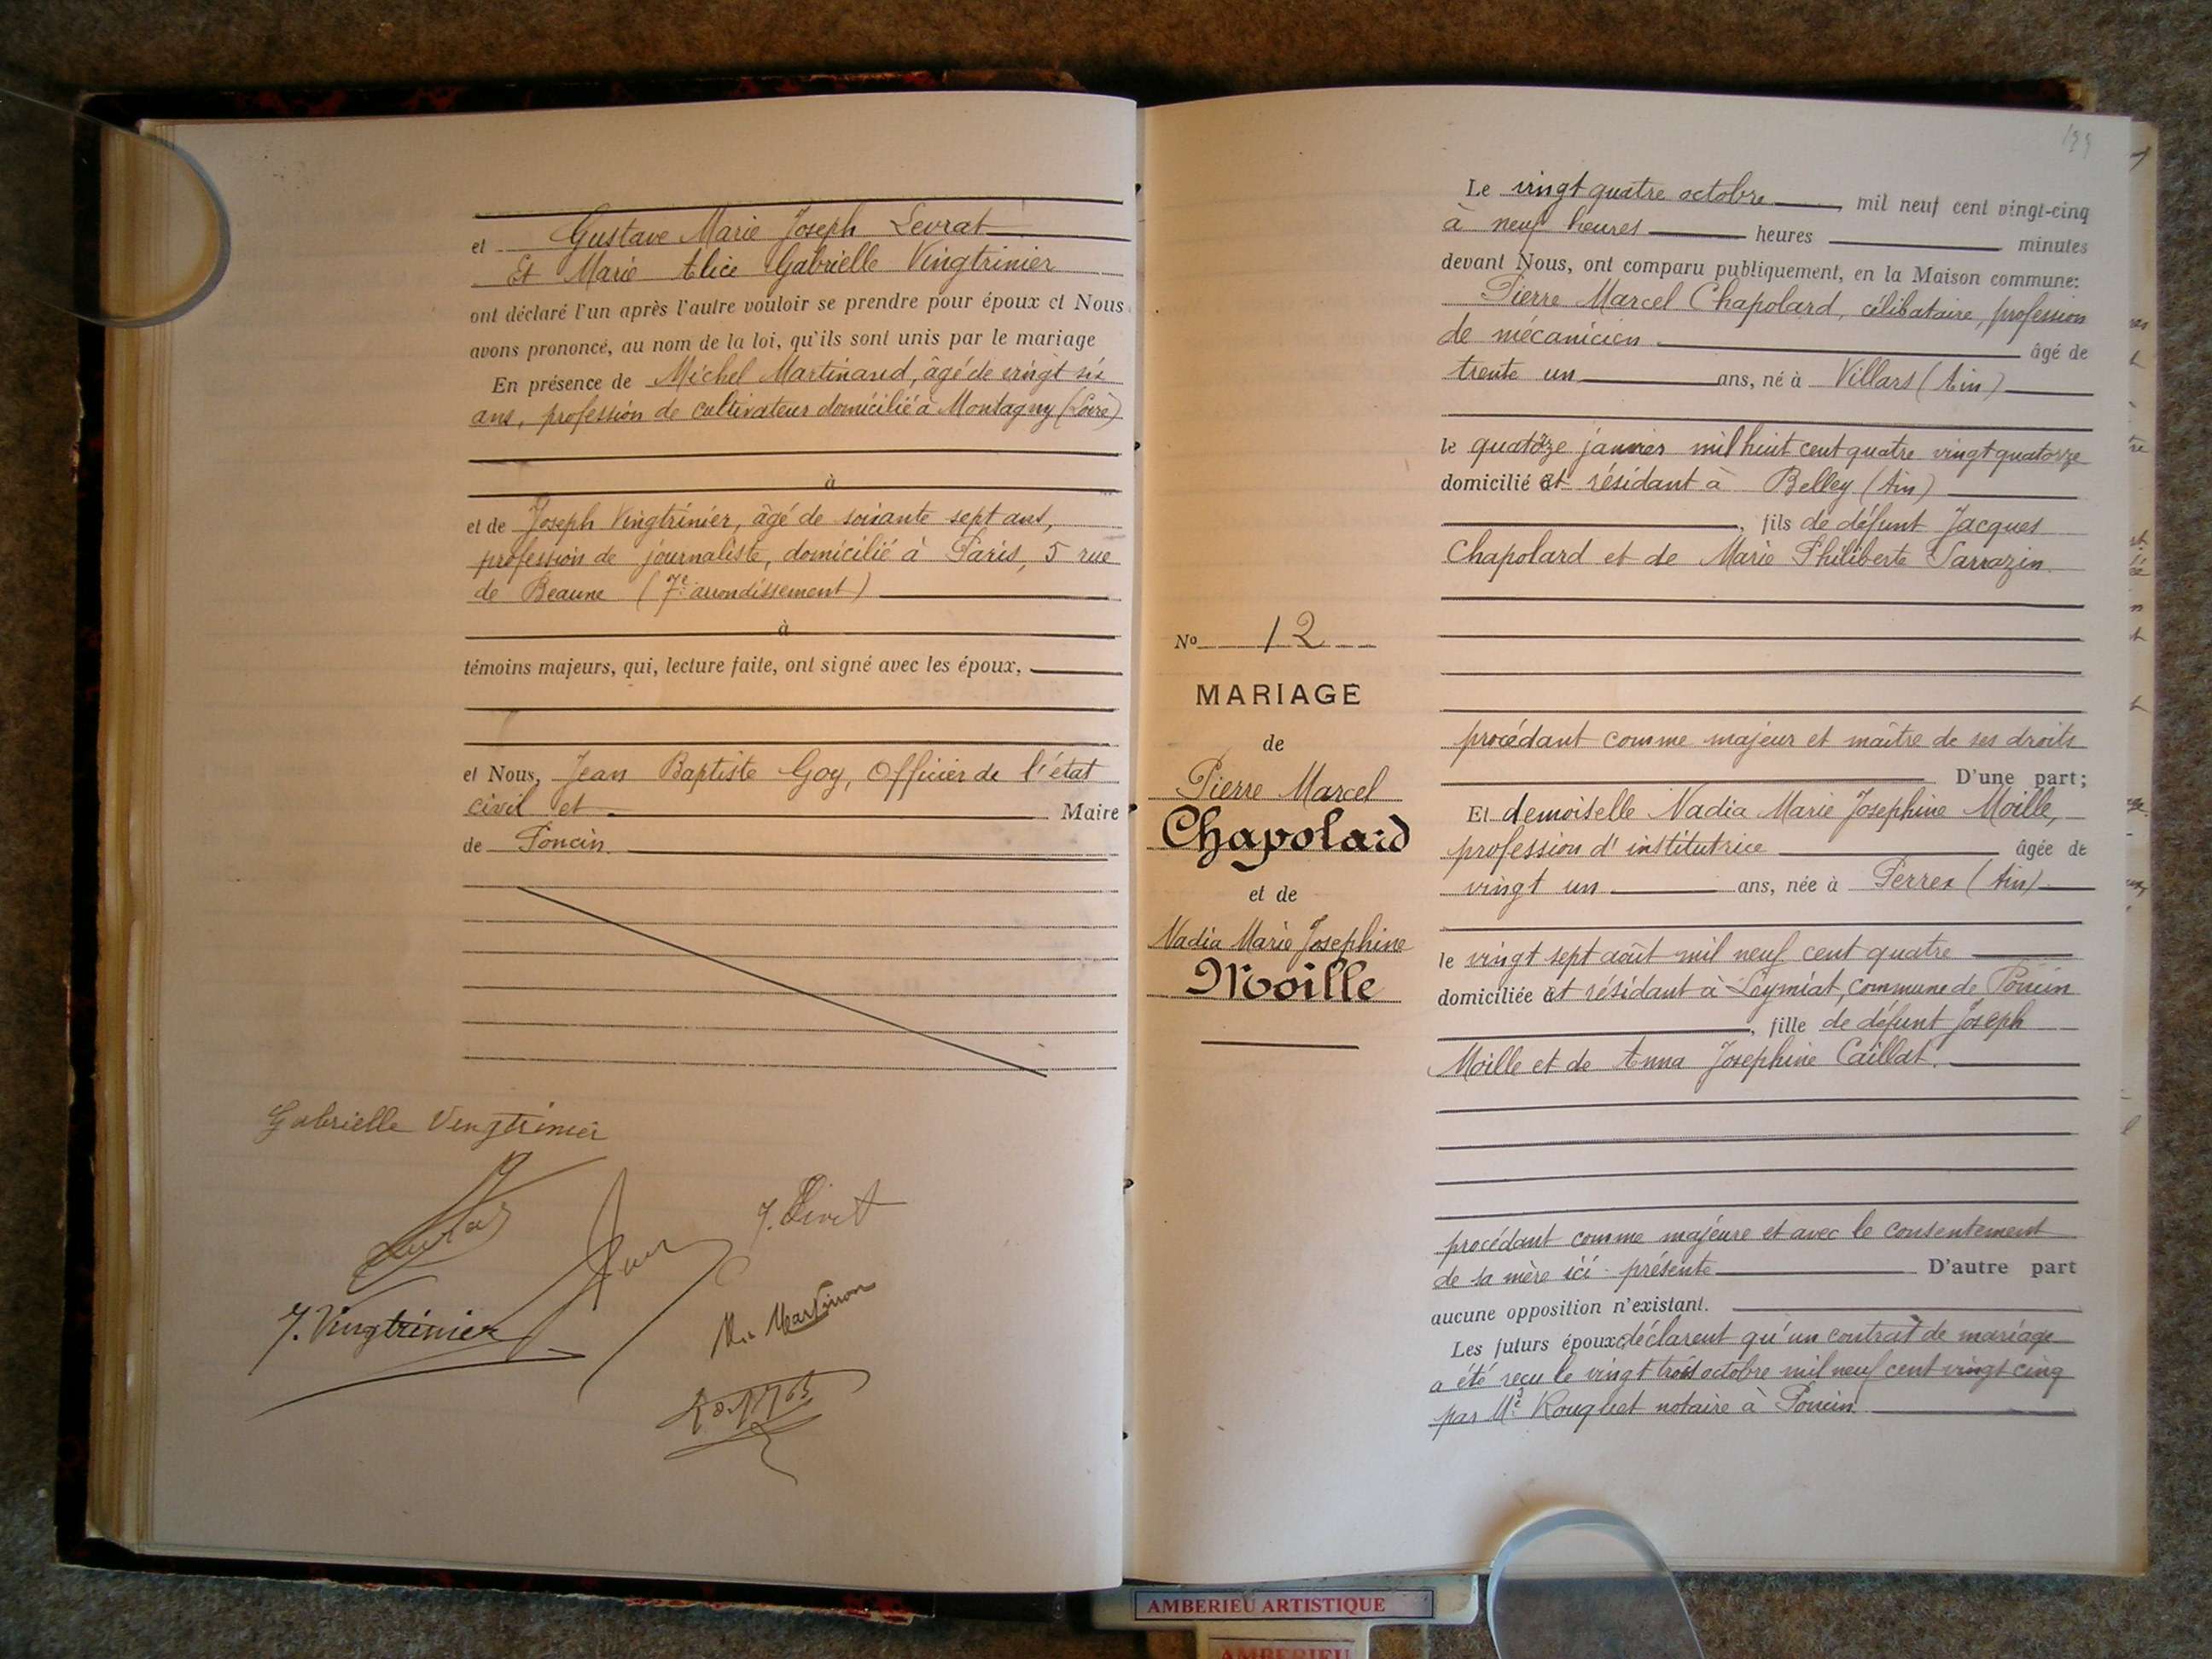 et Gustave Marie Joseph Levrat
Et Marie Alice Gabrielle Vingtrinier
ont déclaré l'un après l'autre vouloir se prendre pour époux et Nous
avons prononcé, au nom de la loi, qu'ils sont unis par le mariage
En présence de Michel Martinand, âgé de vingt six
ans, profession de cultivateur domicilié à Montagny (Loire)
à
et de Joseph Vingtrinier, âgé de soixante sept ans,
profession de journaliste, domicilié à Paris, 5 rue
de Beaune (7e arrondissement)
à
témoins majeurs, qui, lecture faite, ont signé avec les époux,
et Nous, Jean Baptiste Goy, Officier de l'état
civil et Maire
de Poncin.
Gabrielle Vingtrinier
J. Vingtrinier
139
Le vingt quatre octobre, mil neuf cent vingt-cinq
à neuf heures heures minutes
devant Nous, ont comparu publiquement, en la Maison commune:
Pierre Marcel Chapolard, célibataire, profession
de mécanicien âgé de
trente un ans, né à Villars (Ain)
le quatorze janvier mil huit cent quatre vingt quatorze
domicilié et résidant à Belley (Ain)
, fils de défunt Jacques
Chapolard et de Marie Philiberte Sarrazin.
No 12
MARIAGE
de
Pierre Marcel
Chapolard
et de
Nadia Marie Josephine
Moille
procédant comme majeur et maître de ses droits
D'une part;
Et demoiselle Nadia Marie Josephine Moille,
profession d'institutrice âgée de
vingt un ans, née à Perrex (Ain)
le vingt sept août mil neuf cent quatre
domiciliée et résidant à Leymiat, commune de Poncin
, fille de défunt Joseph
Moille et de Anna Josephine Caillat.
procédant comme majeure et avec le consentement
de sa mère ici présente D'autre part
aucune opposition n'existant.
Les futurs époux déclarent qu'un contrat de mariage
a été reçu le vingt trois octobre mil neuf cent vingt cinq
par Me Rouquet notaire à Poncin.
AMBERIEU ARTISTIQUE
AMBERIEU